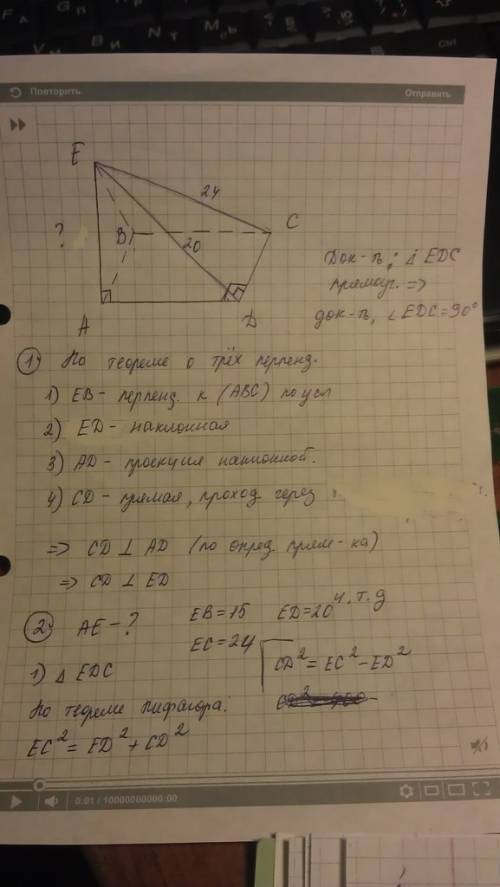 Повторить
Отправить
E
24
C
?
B
20
A
D
Док-ть: △ EDC
прямоуг. =>
док-ть, ∠ EDC = 90°
1. По теореме о трёх перпенд.
1) EB - перпенд. к (ABC) по усл
2) ED - наклонная
3) AD - проекция наклонной.
4) CD - прямая, проход. через
=> CD ⊥ AD (по опред. прям-ка)
=> CD ⊥ ED
ч.т.д
2. AE - ? EB = 15 ED = 20
EC = 24
1) △ EDC
CD² = EC² - ED²
По теореме Пифагора:
EC² = ED² + CD²
0:01 / 10000000000:00